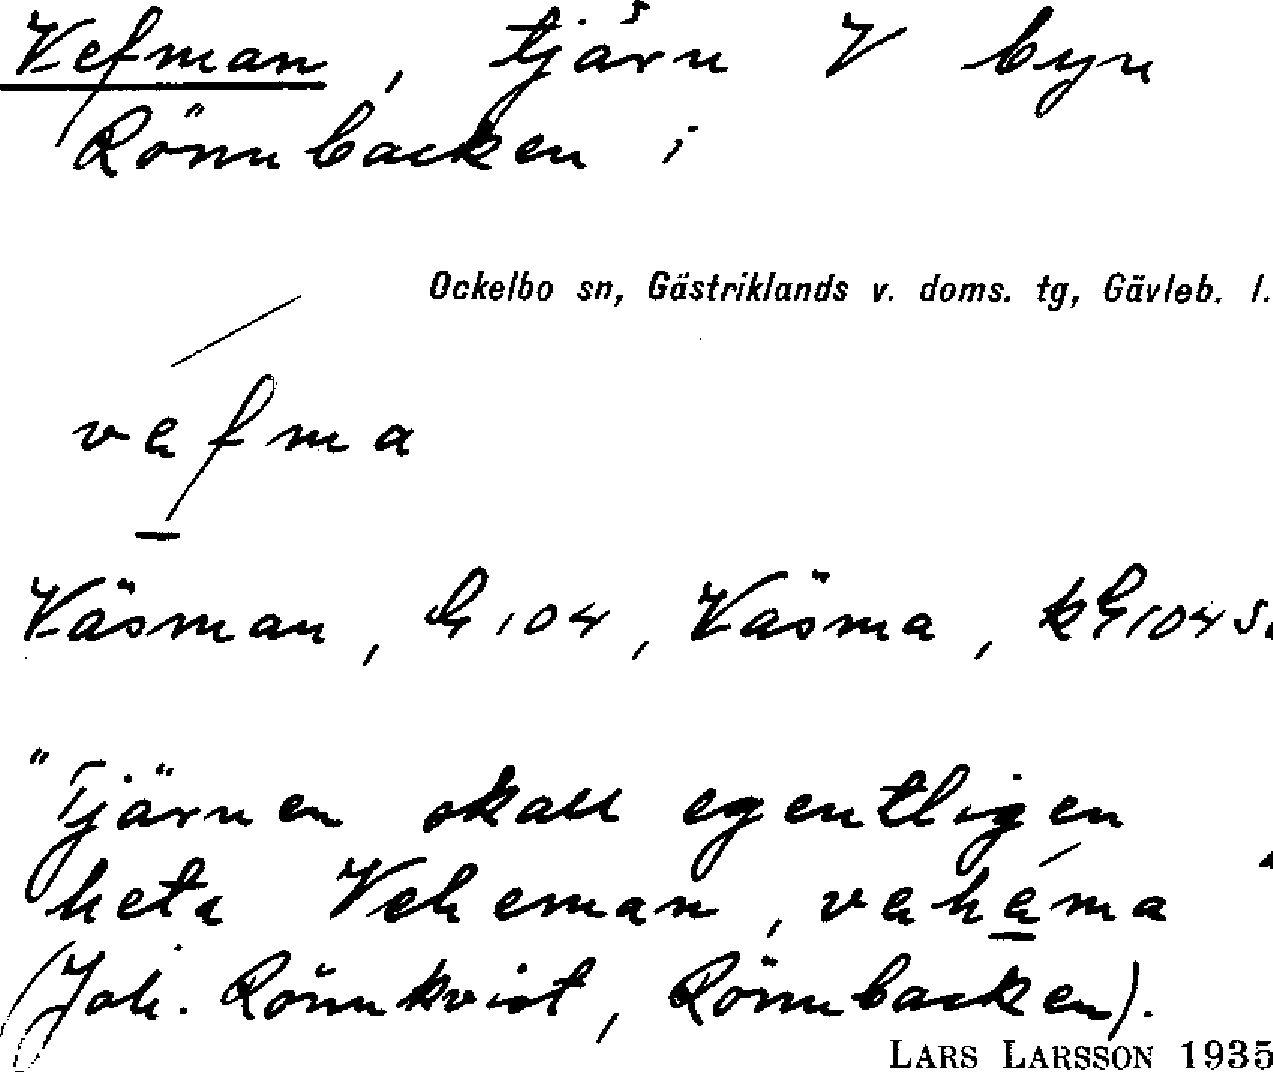 Vefman, tjärn V byn
Rönnbacken i
Ockelbo sn, Gästriklands v. doms. tg, Gävleb. l.
vefma
Väsman, G 104, Väsma, kG 104 S.
"Tjärnen skall egentligen
heta Veheman, vehema"
(Joh. Rönnkvist, Rönnbacken).
LARS LARSSON 1935